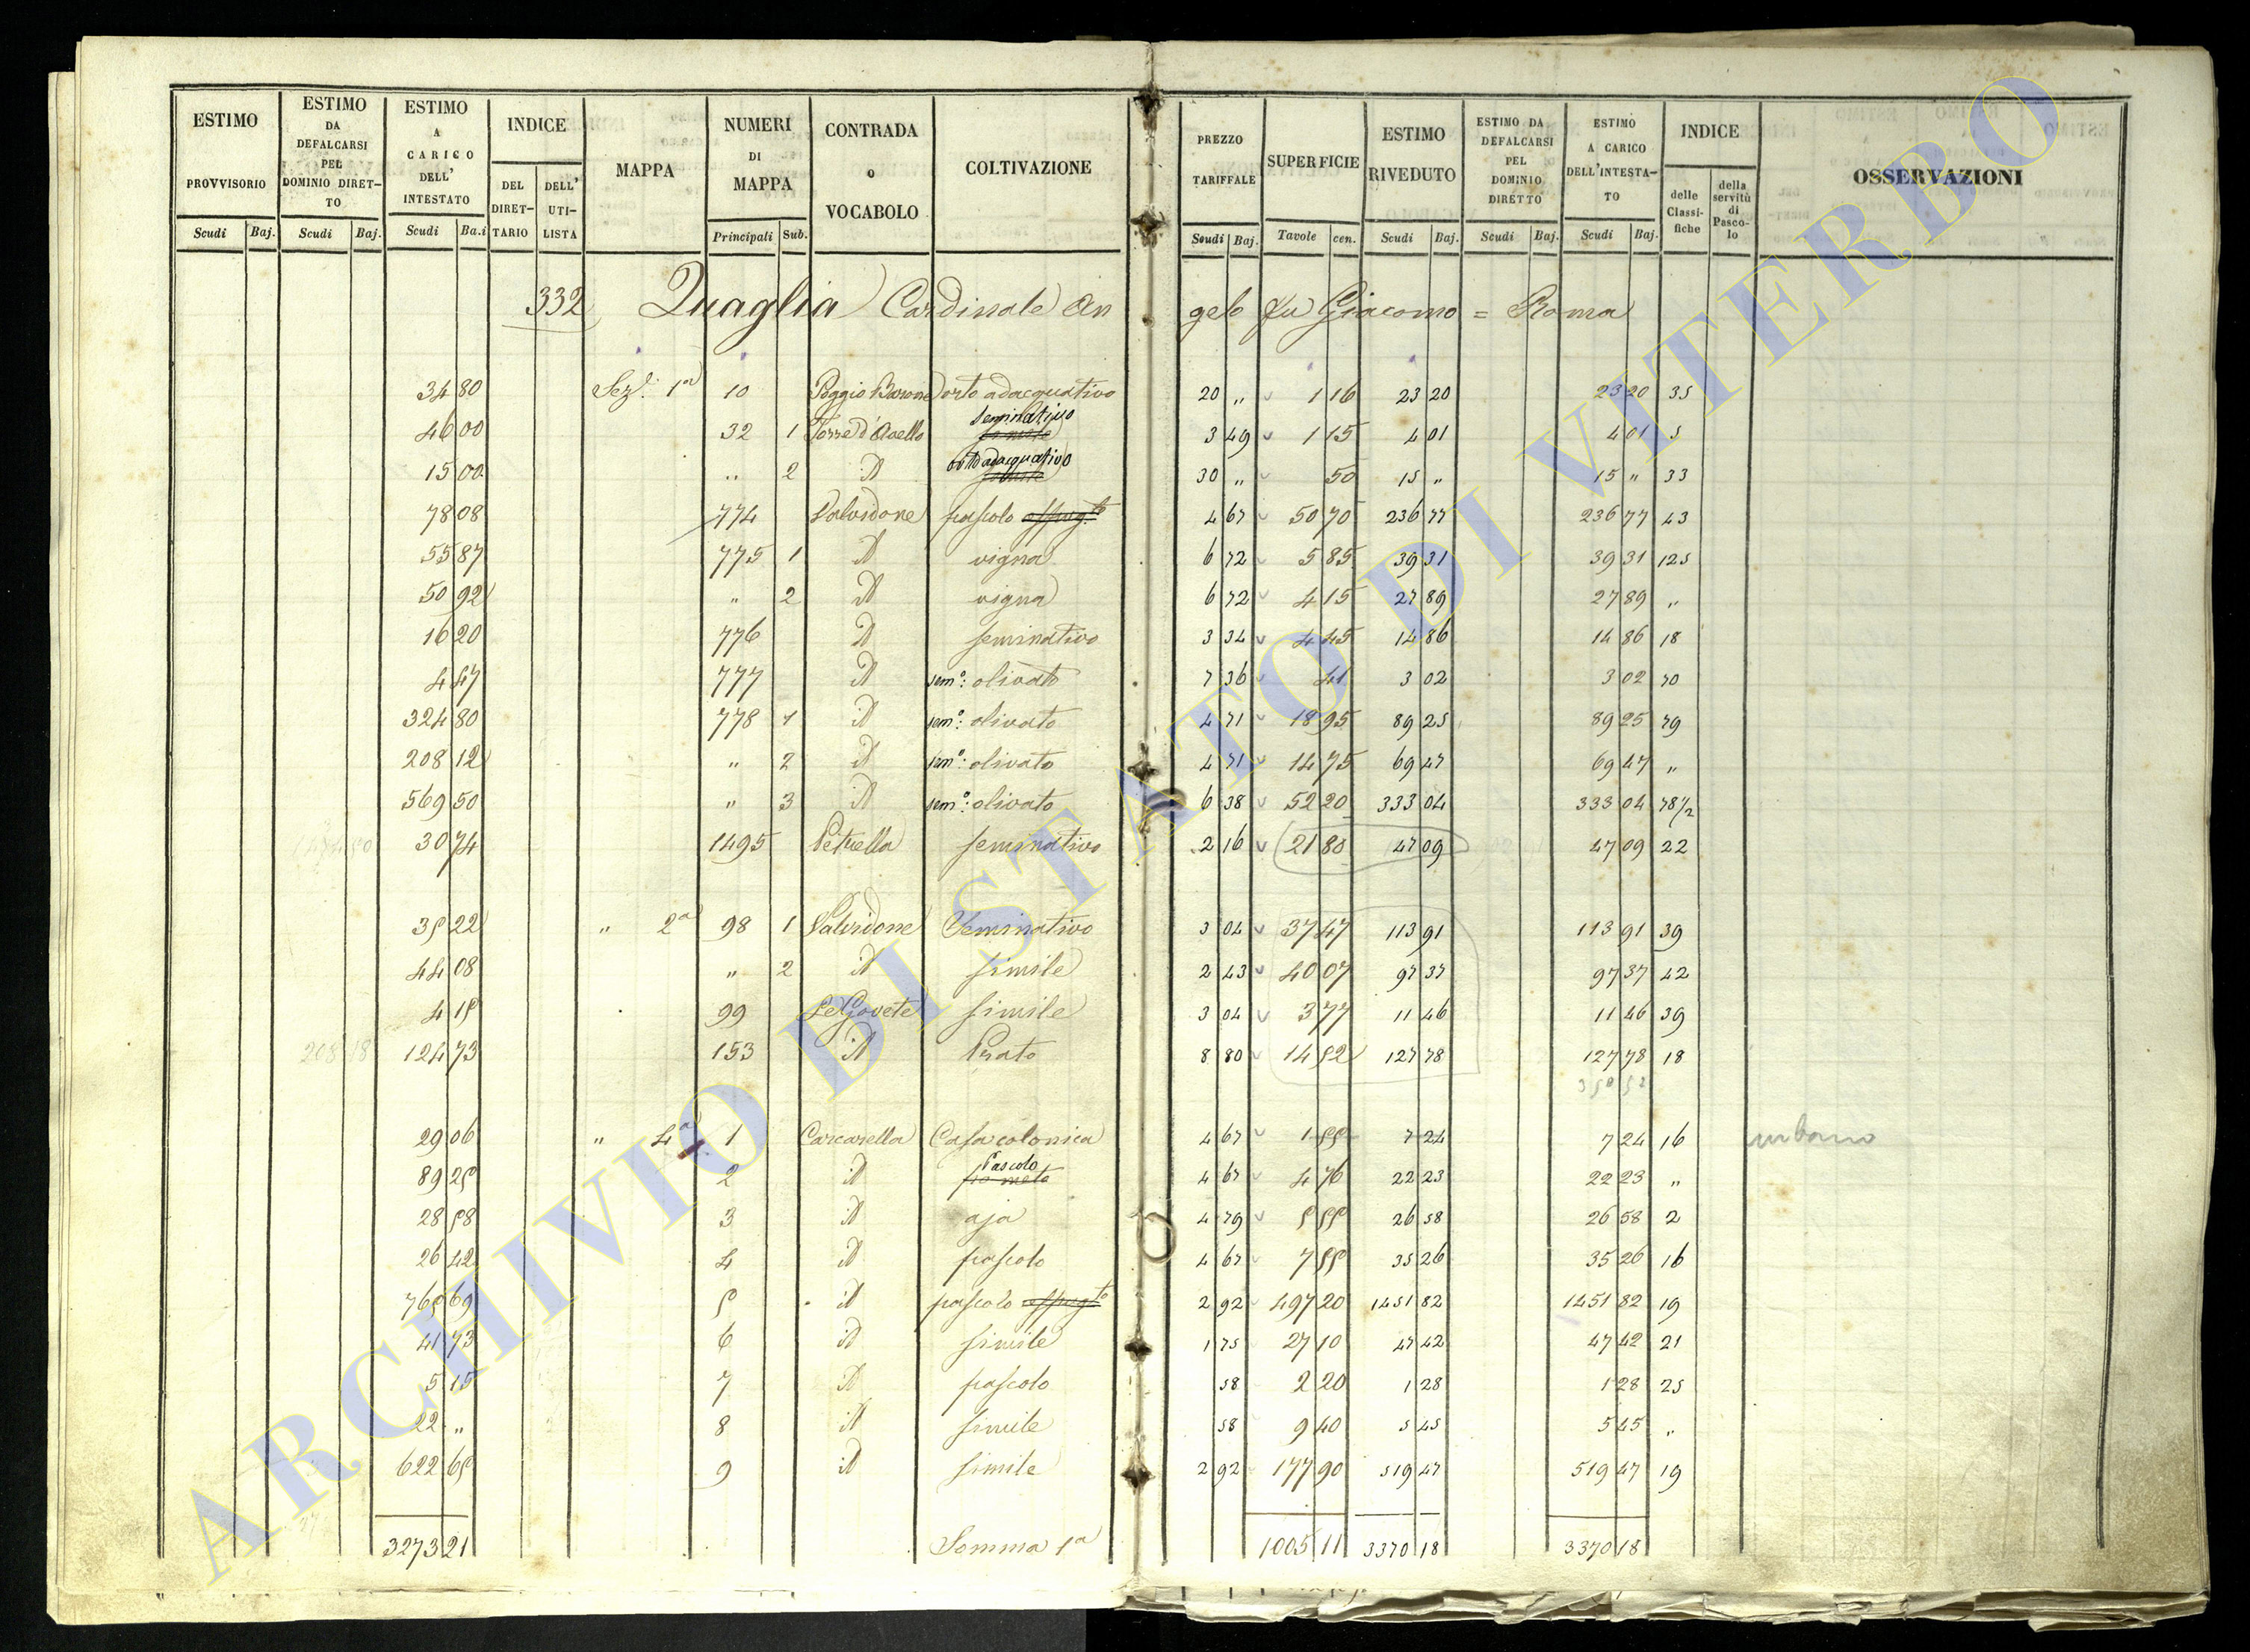 ESTIMO PROVVISORIO Scudi Baj. ESTIMO DA DEFALCARSI PEL DOMINIO DIRET-TO Scudi Baj. ESTIMO A CARICO DELL' INTESTATO Scudi Ba.i INDICE DEL DIRET-TARIO DELL' UTI-LISTA MAPPA NUMERI DI MAPPA Principali Sub. CONTRADA O VOCABOLO COLTIVAZIONE PREZZO TARIFFALE Scudi Baj. SUPERFICIE Tavole cen. ESTIMO RIVEDUTO Scudi Baj. ESTIMO DA DEFALCARSI PEL DOMINIO DIRETTO Scudi Baj. ESTIMO A CARICO DELL'INTESTA-TO Scudi Baj. INDICE delle Classi-fiche della servitù di Pasco-lo OSSERVAZIONI
332 Quaglia Cardinale Angelo fu Giacomo = Roma
34 80 Sez.e 1a 10 Poggio Barone orto adacquativo 20 " 1 16 23 20 23 20 35
46 00 32 1 Torre d'Avello seminativo 3 49 1 15 4 01 4 01 5
15 00 " 2 id orto adacquativo 30 " 50 15 " 15 " 33
78 08 774 Valvidone pascolo 4 67 50 70 236 77 236 77 43
55 87 775 1 id vigna 6 72 5 85 39 31 39 31 125
50 92 " 2 id vigna 6 72 4 15 27 89 27 89 "
16 20 776 id seminativo 3 34 4 45 14 86 14 86 18
4 47 777 id sem.o: olivato 7 36 41 3 02 3 02 70
324 80 778 1 id sem.o: olivato 4 71 18 95 89 25 89 25 79
208 12 " 2 id sem.o: olivato 4 71 14 75 69 47 69 47 "
569 50 " 3 id sem.o: olivato 6 38 52 20 333 04 333 04 78 1/2
30 74 1495 Petrella seminativo 2 16 21 80 47 09 47 09 22
35 22 " 2a 98 1 Valvidone Seminativo 3 04 37 47 113 91 113 91 39
44 08 " 2 id simile 2 43 40 07 97 37 97 37 42
4 15 99 simile 3 04 3 77 11 46 11 46 39
208 18 124 73 153 id Prato 8 80 14 52 127 78 127 78 18
350 52
29 06 " 4a 1 Carcarella Casa colonica 4 67 1 55 7 24 7 24 16 urbano
89 25 2 id Pascolo 4 67 4 76 22 23 22 23 "
28 58 3 id aja 4 79 5 55 26 58 26 58 2
26 42 4 id pascolo 4 67 7 55 35 26 35 26 16
765 69 5 id pascolo 2 92 497 20 1451 82 1451 82 19
41 73 6 id simile 1 75 27 10 47 42 47 42 21
5 15 7 id pascolo 58 2 20 1 28 1 28 25
22 " 8 id simile 58 9 40 5 45 5 45 "
622 65 9 id simile 2 92 177 90 519 47 519 47 19
3273 21 Somma 1a 1005 11 3370 18 3370 18
ARCHIVIO DI STATO DI VITERBO